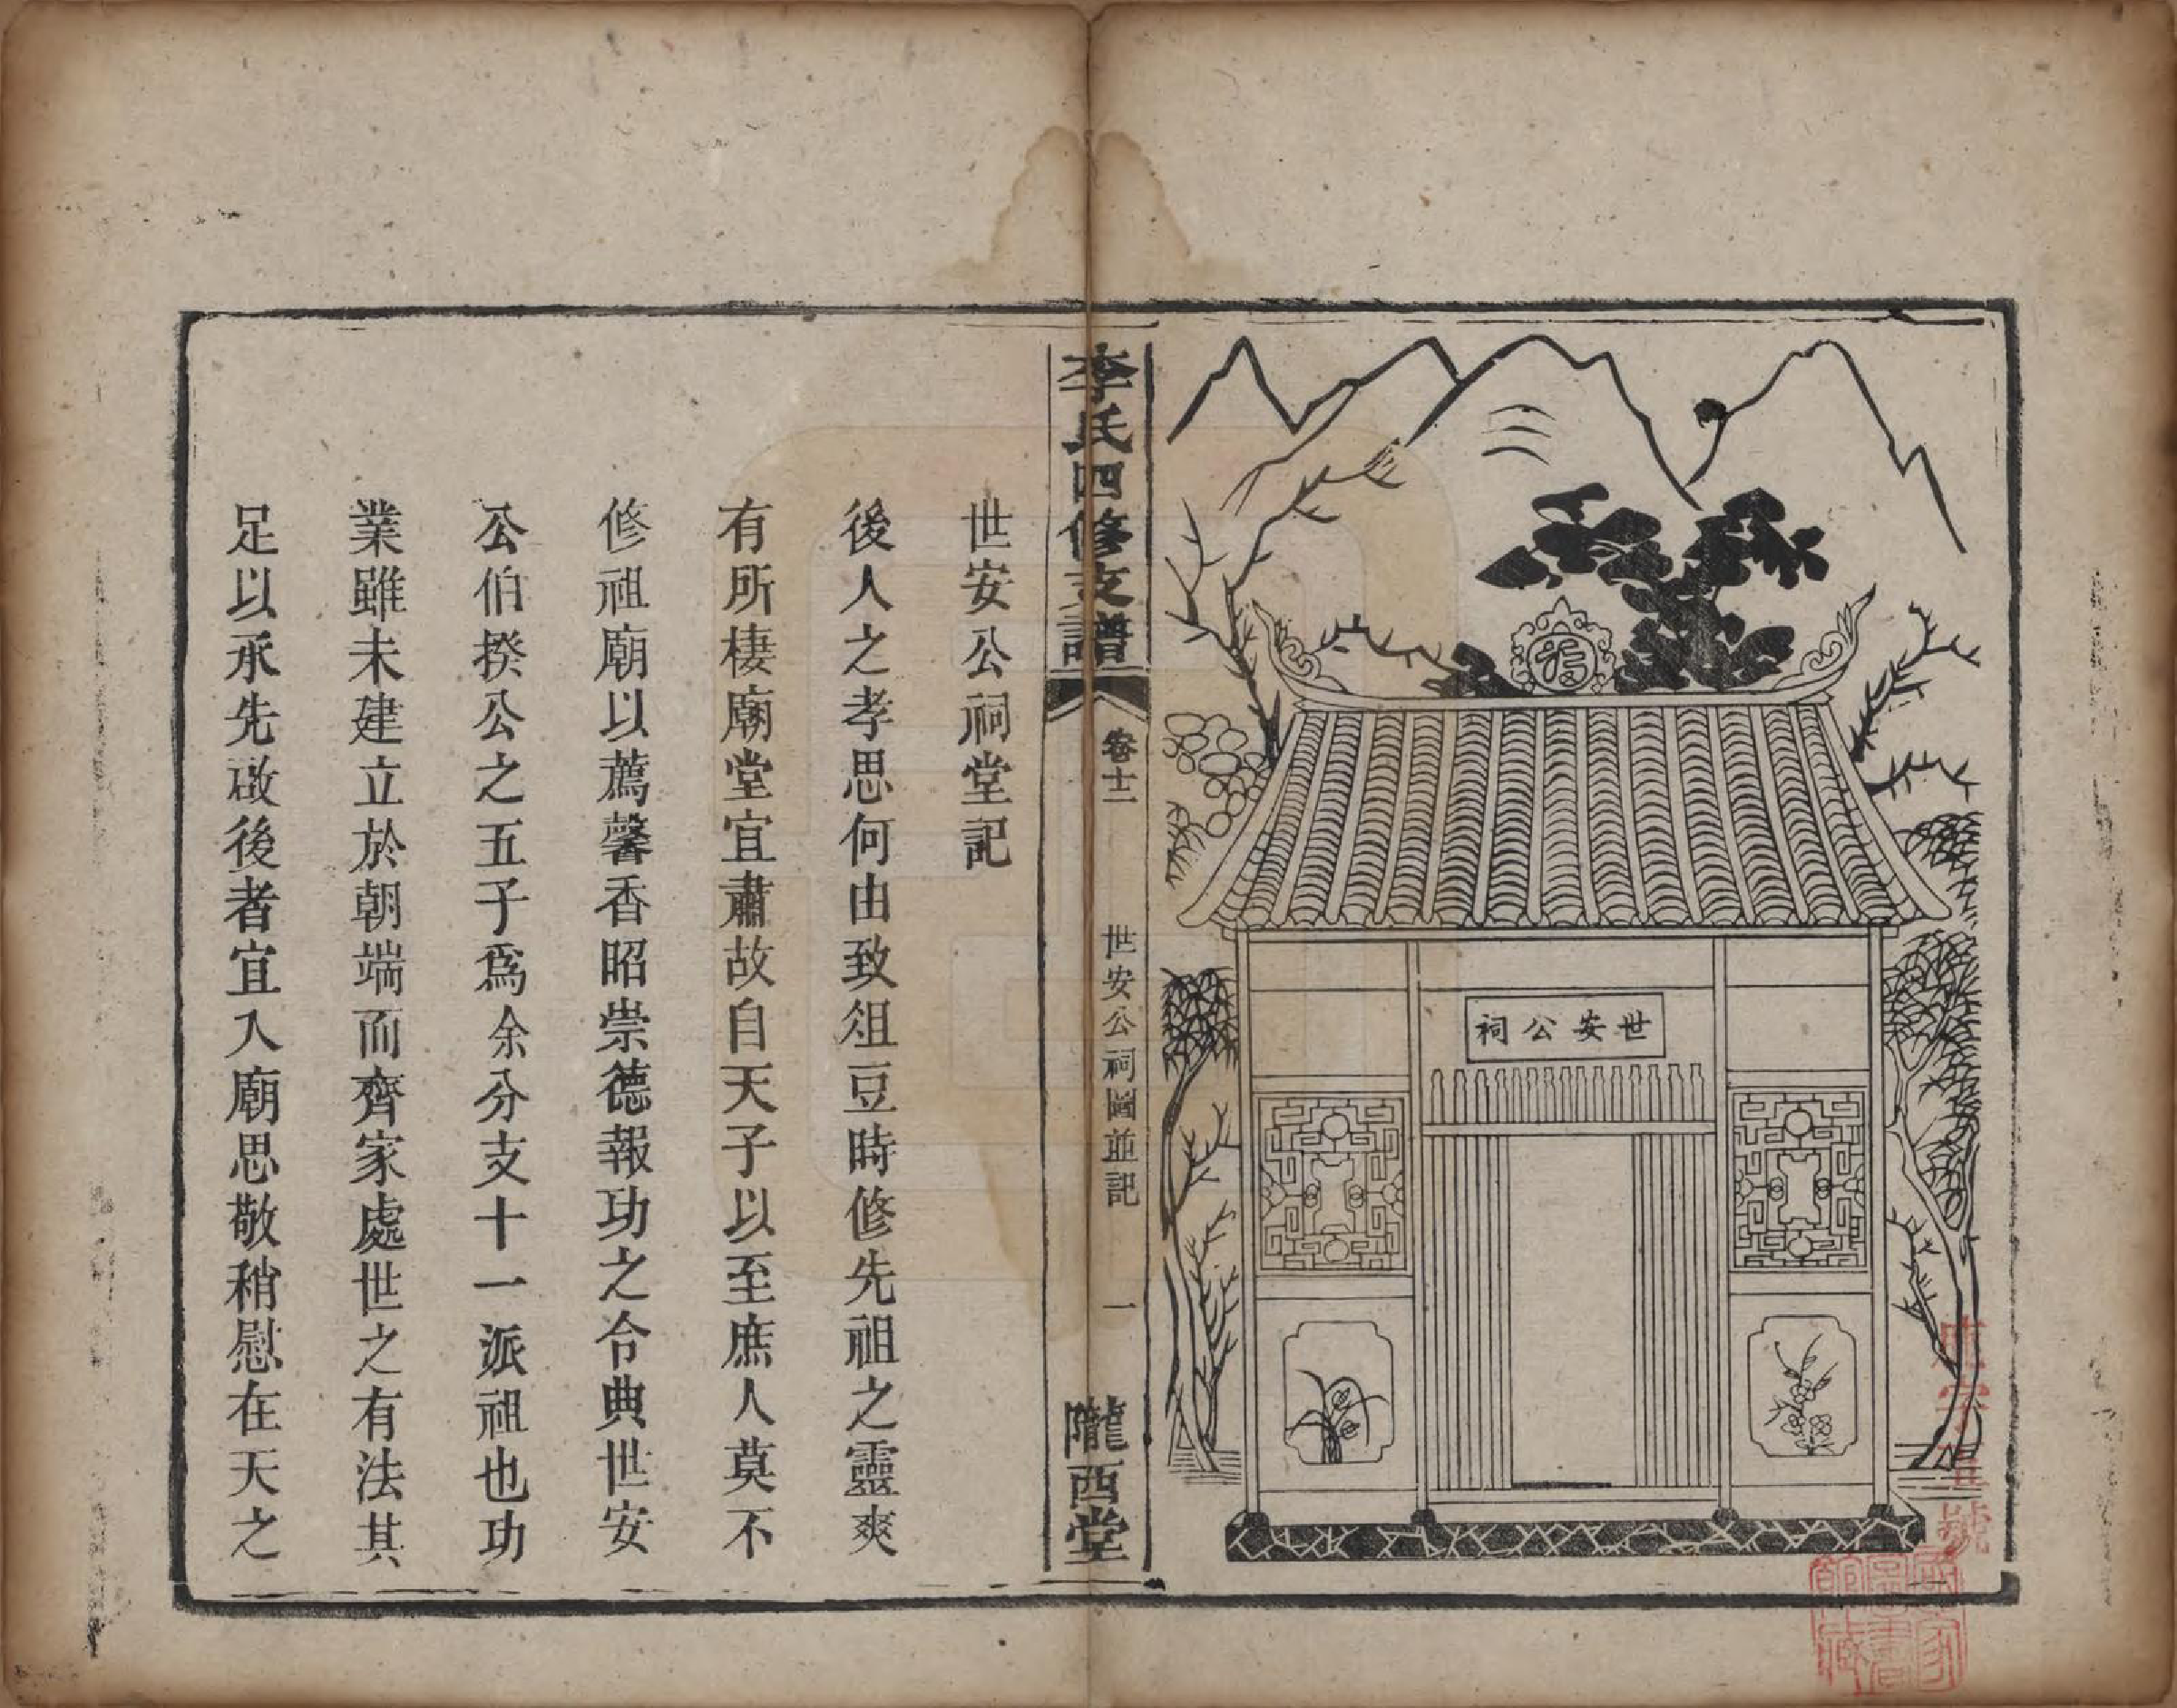 世安公祠
福
李氏四修支譜
卷十二
世安公祠圖並記
一
隴西堂
世安公祠堂記
後人之孝思何由致俎豆時修先祖之靈爽
有所棲廟堂宜肅故自天子以至庶人莫不
修祖廟以薦馨香昭崇德報功之令典世安
公伯揆公之五子爲余分支十一派祖也功
業雖未建立於朝端而齊家處世之有法其
足以承先啟後者宜入廟思敬稍慰在天之